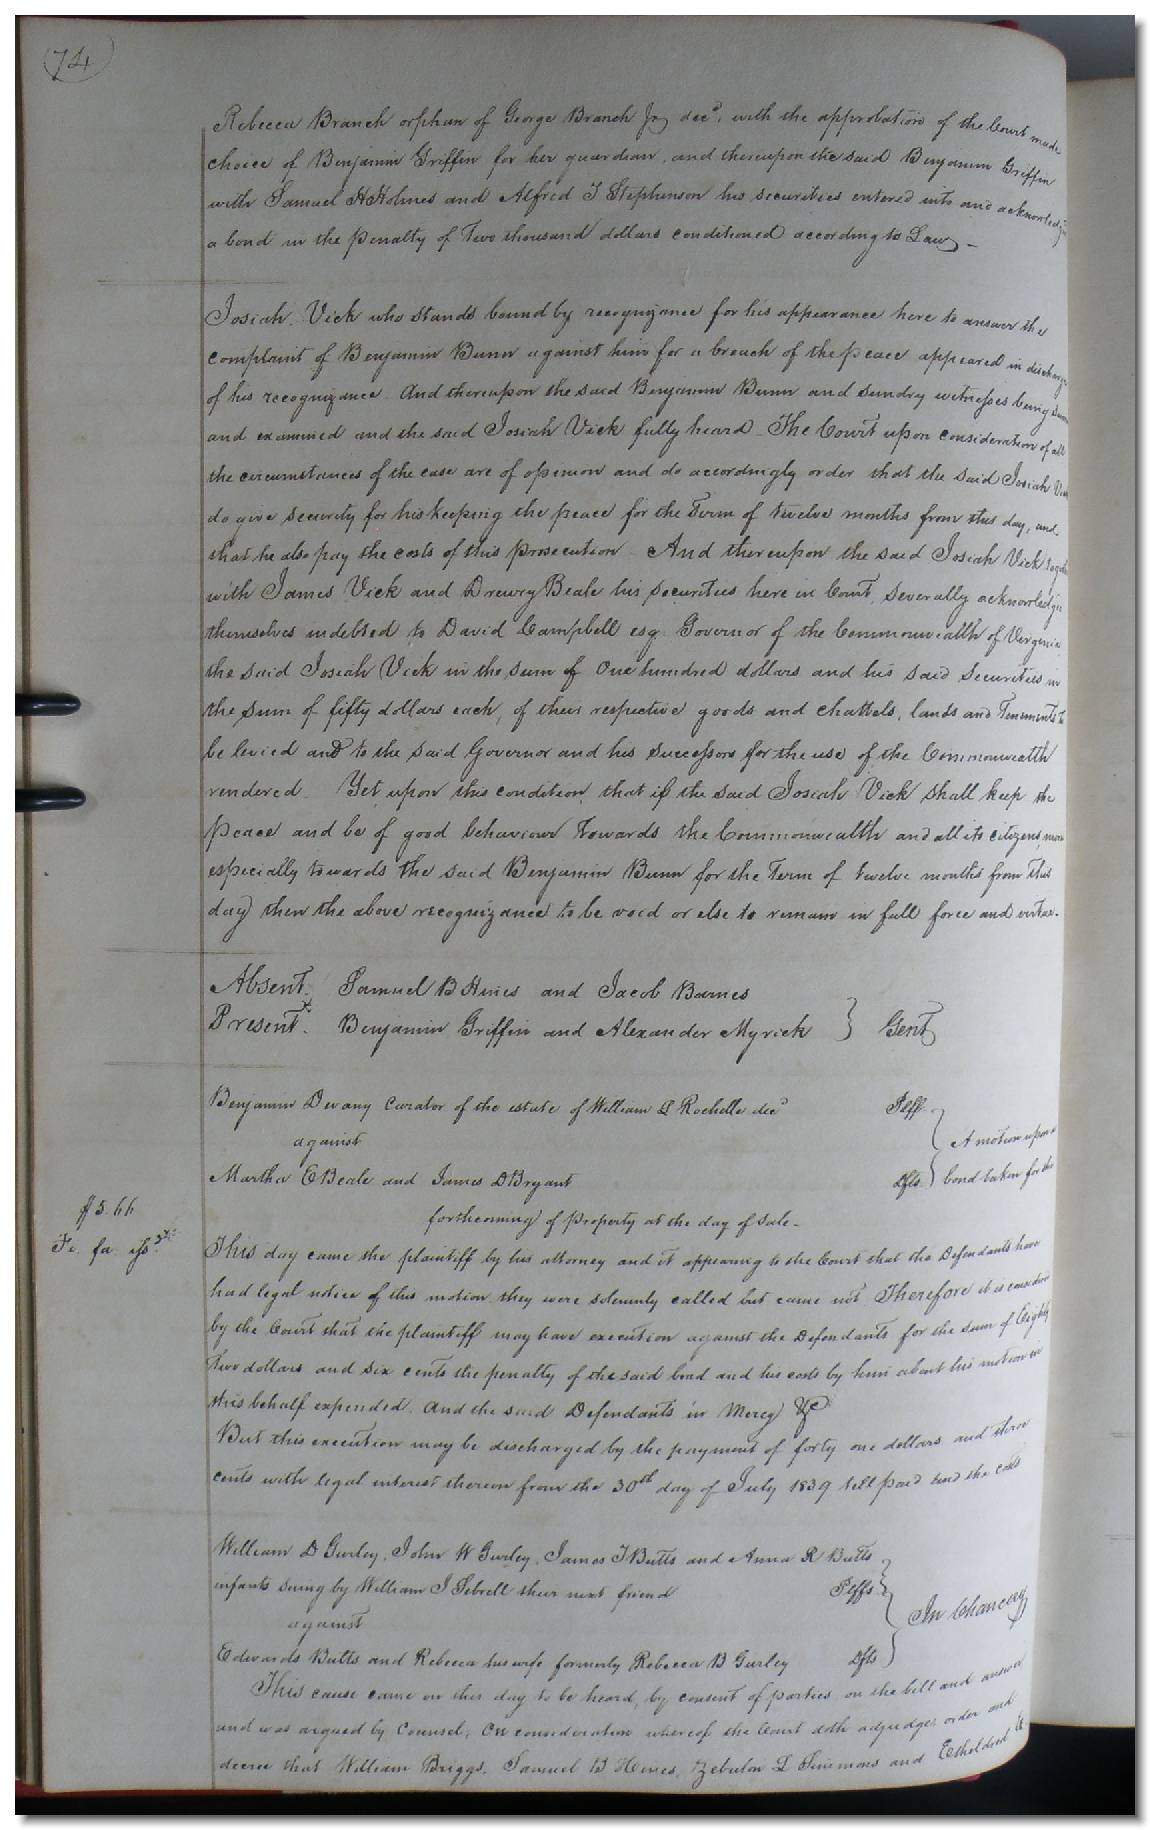 74
Rebecca Branch orphan of George Branch Jr decd, with the approbation of the Court made
choice of Benjamin Griffin for her guardian, and thereupon the said Benjamin Griffin
with Samuel H Holmes and Alfred J Stephenson his securities entered into and acknowledged
a bond in the penalty of Two thousand dollars conditioned according to Law –
Josiah Vick who stands bound by recognizance for his appearance here to answer the
complaint of Benjamin Bunn against him for a breach of the peace appeared in discharge
of his recognizance. And thereupon the said Benjamin Bunn and sundry witnesses being sworn
and examined and the said Josiah Vick fully heard – The Court upon consideration of all
the circumstances of the case are of opinion and do accordingly order that the said Josiah Vick
do give security for his keeping the peace for the Term of twelve months from this day, and
that he also pay the costs of this prosecution – And thereupon the said Josiah Vick
with James Vick and Drewry Beale his securities here in Court, severally acknowledge
themselves indebted to David Campbell esq. Governor of the Commonwealth of Virginia
the said Josiah Vick in the sum of One hundred dollars and his said Securities in
the sum of fifty dollars each, of their respective goods and chattels, lands and Tenements to
be levied and to the said Governor and his successors for the use of the Commonwealth
rendered. Yet upon this condition, that if the said Josiah Vick shall keep the
peace and be of good behaviour towards the Commonwealth and all its citizens, more
especially towards the said Benjamin Bunn for the Term of twelve months from this
day) then the above recognizance to be void or else to remain in full force and virtue.
Absent. Samuel B Hines and Jacob Barnes
Present. Benjamin Griffin and Alexander Myrick } Gent
Benjamin Devany Curator of the estate of William L Rochelle decd Plff.
against A motion upon a
Martha E Beale and James D Bryant Dfts. bond taken for the
forthcoming of Property at the day of sale –
$5.66
Fi. fa. iss.
This day came the plaintiff by his attorney and it appearing to the Court that the Defendants have
had legal notice of this motion they were solemnly called but came not Therefore it is considered
by the Court that the plaintiff may have execution against the Defendants for the sum of Eighty
Two dollars and six cents the penalty of the said bond and his costs by him about his motion in
this behalf expended. And the said Defendants in Mercy &c
But this execution may be discharged by the payment of forty one dollars and three
cents with legal interest thereon from the 30th day of July 1839 till paid and the costs
William D Gurley, John W Gurley, James J Butts and Anna R Butts
infants suing by William J Sebrell their next friend Plffs
against In Chancery
Edwards Butts and Rebecca his wife formerly Rebecca B Gurley Dfts
This cause came on this day to be heard, by consent of parties, on the bill and answer
and was argued by Counsel; On consideration whereof the Court doth adjudge, order and
decree that William Briggs, Samuel B Hines, Zebulon L Simmons and Etheldred